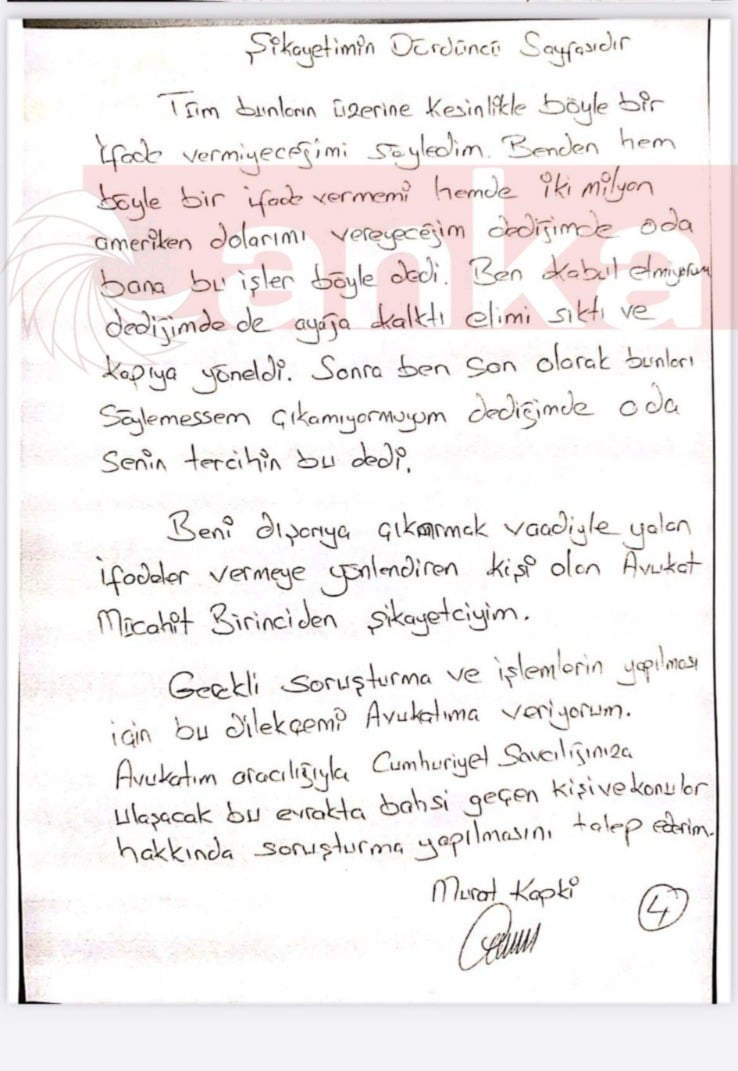 Şikayetimin Dördüncü Sayfasıdır
Tüm bunların üzerine kesinlikle böyle bir
ifade vermiyeceğimi söyledim. Benden hem
böyle bir ifade vermemi hemde iki milyon
ameriken dolarımı vereyeceğim dediğimde oda
bana bu işler böyle dedi. Ben kabul etmiyorum
dediğimde de ayağa kalktı elimi sıktı ve
kapıya yöneldi. Sonra ben son olarak bunları
Söylemessem çıkamıyormuyum dediğimde oda
senin tercihin bu dedi.
Beni dışarıya çıkarmak vaadiyle yalan
ifadeler vermeye yönlendiren kişi olan Avukat
Mücahit Birinciden şikayetciyim.
Gerekli soruşturma ve işlemlerin yapılması
için bu dilekçemi Avukatıma veriyorum.
Avukatım aracılığıyla Cumhuriyet Savcılığınıza
ulaşacak bu evrakta bahsi geçen kişi ve konular
hakkında soruşturma yapılmasını talep ederim.
Murat Kapki
4
anka